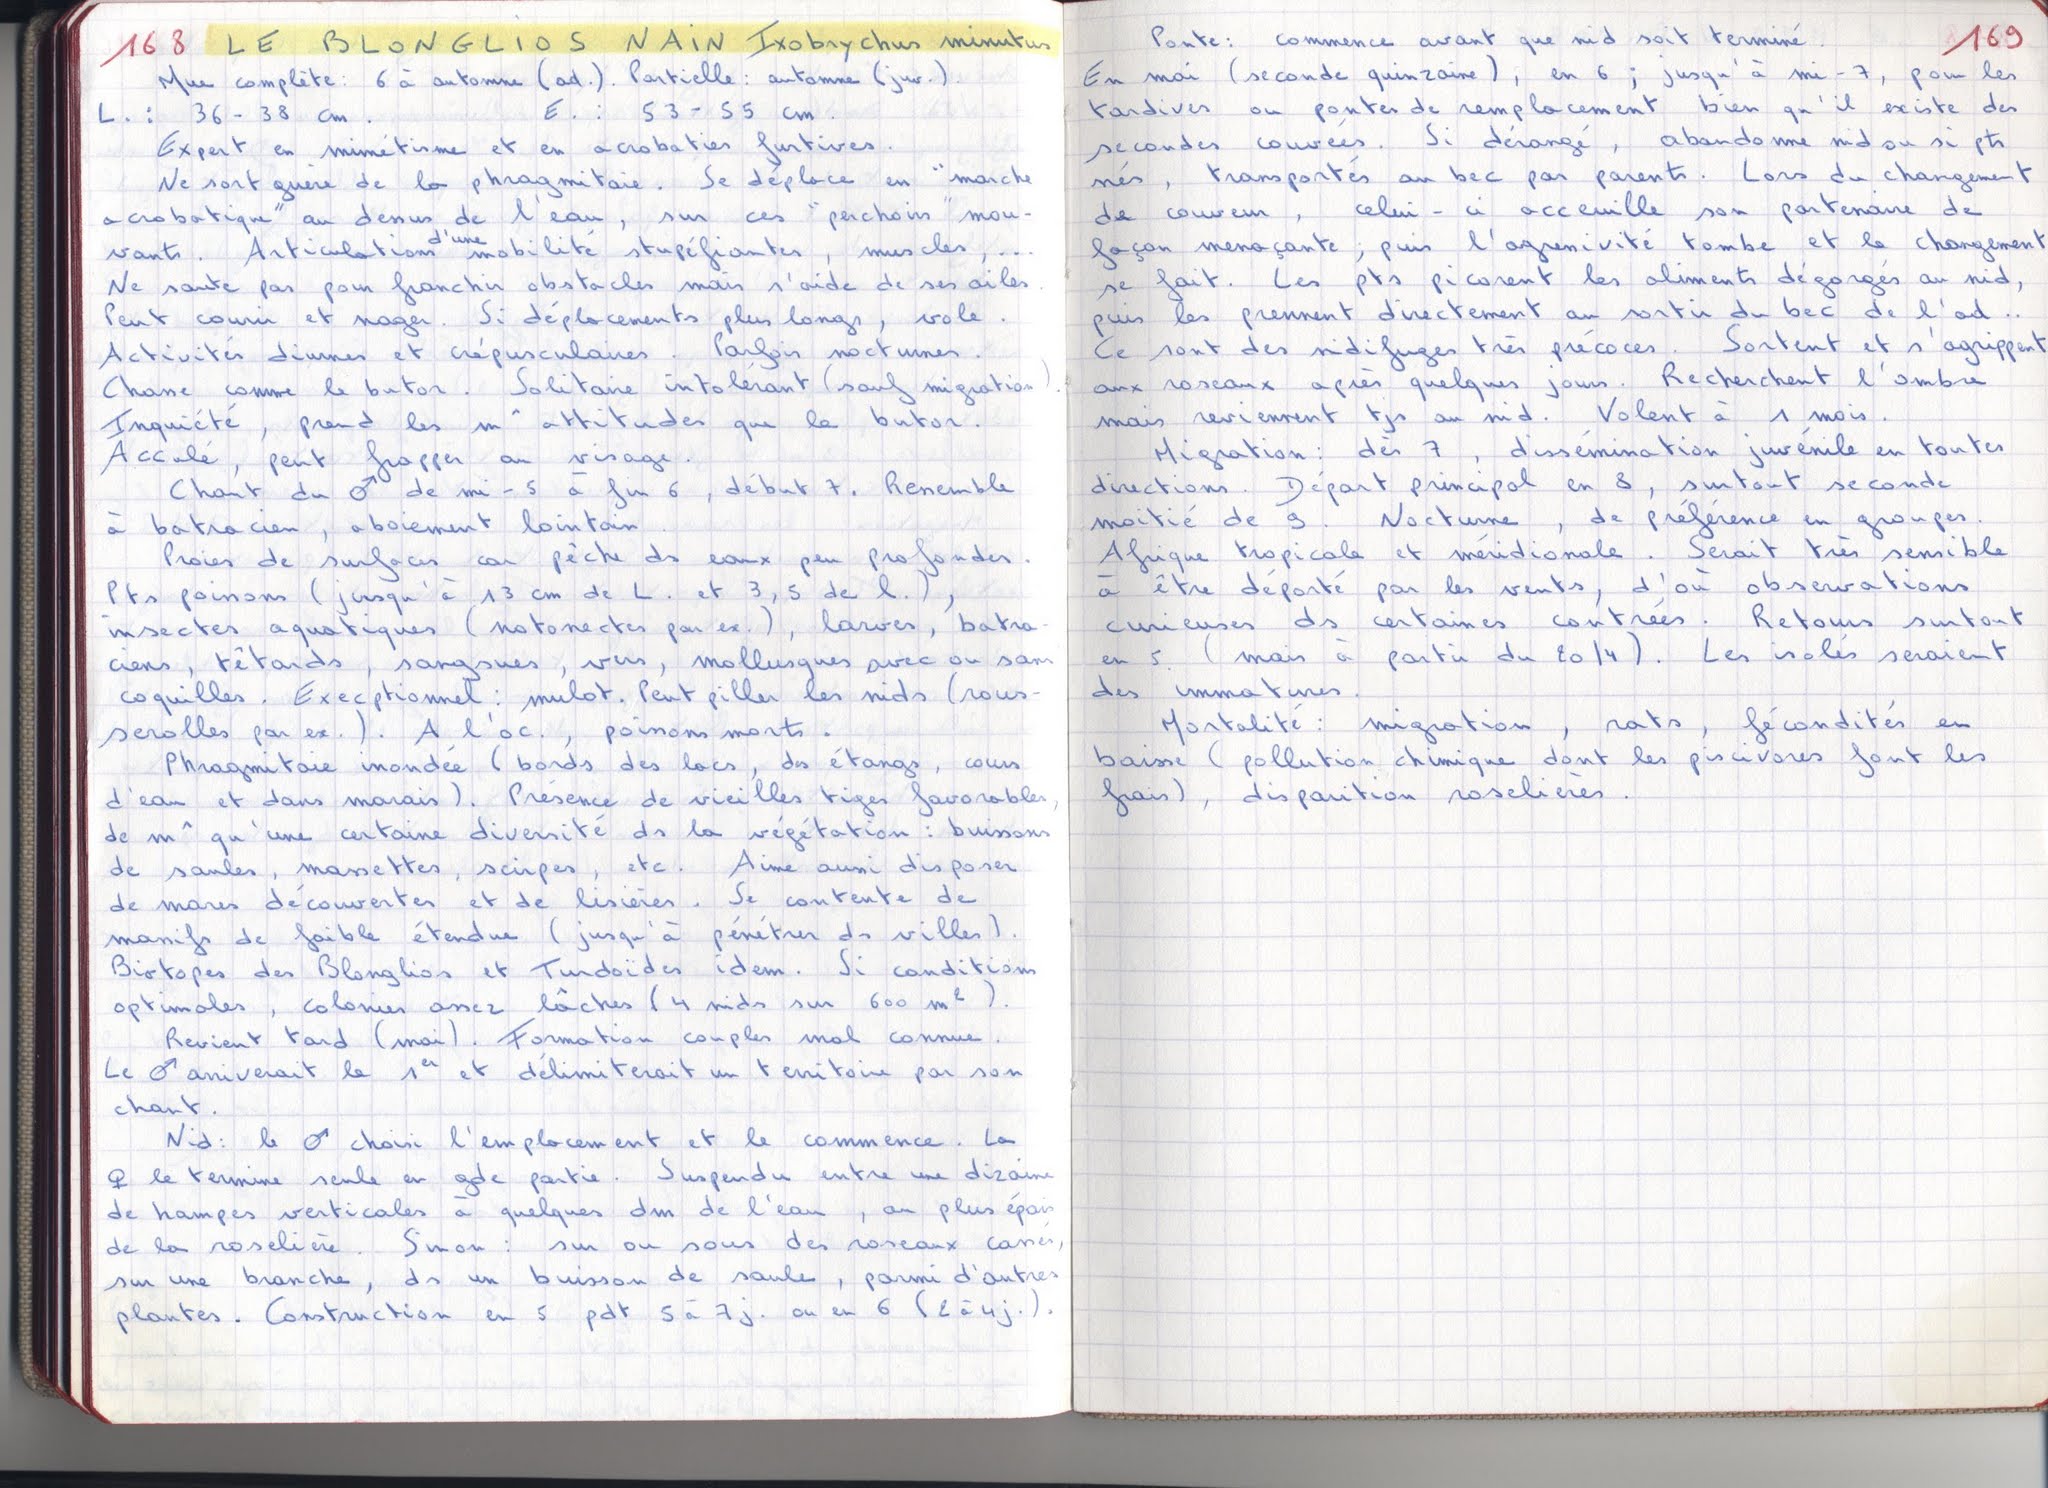 168 LE BLONGLIOS NAIN Ixobrychus minutus
Mue complète : 6 à automne (ad.). Partielle : automne (juv.).
L. : 36 - 38 cm. E. : 53 - 55 cm.
Expert en mimétisme et en acrobaties furtives.
Ne sort guère de la phragmitaie. Se déplace en "marche
acrobatique" au dessus de l'eau, sur ces "perchoirs" mou-
vants. Articulations d'une mobilité stupéfiantes, muscles, ...
Ne saute pas pour franchir obstacles mais s'aide de ses ailes.
Peut courir et nager. Si déplacements plus longs, vole.
Activités diurnes et crépusculaires. Parfois nocturnes.
Chasse comme le butor. Solitaire intolérant (sauf migration).
Inquiété, prend les m^ attitudes que le butor.
Acculé, peut frapper au visage.
Chant du ♂ de mi-5 à fin 6, début 7. Ressemble
à batracien, aboiement lointain.
Proies de surfaces car pêche ds eaux peu profondes.
Pts poissons (jusqu'à 13 cm de L. et 3,5 de l.),
insectes aquatiques (notonectes par ex.), larves, batra-
ciens, têtards, sangsues, vers, mollusques avec ou sans
coquilles. Execptionnel : mulot. Peut piller les nids (rous-
serolles par ex.). A l'oc., poissons morts.
Phragmitaie inondée (bords des lacs, des étangs, cours
d'eau et dans marais). Présence de vieilles tiges favorables,
de m^ qu'une certaine diversité ds la végétation : buissons
de saules, massettes, scirpes, etc. Aime aussi disposer
de mares découvertes et de lisières. Se contente de
massifs de faible étendue (jusqu'à pénétrer ds villes).
Biotopes des Blonglios et Turdoïdes idem. Si conditions
optimales, colonies assez lâches (4 nids sur 600 m²).
Revient tard (mai). Formation couples mal connue.
Le ♂ arriverait le 1er et délimiterait un territoire par son
chant.
Nid : le ♂ choisi l'emplacement et le commence. La
♀ le termine seule en gde partie. Suspendu entre une dizaine
de hampes verticales à quelques dm de l'eau, au plus épais
de la roselière. Sinon : sur ou sous des roseaux cassés,
sur une branche, ds un buisson de saule, parmi d'autres
plantes. Construction en 5 pdt 5 à 7 j. ou en 6 (2 à 4 j.).
169
Ponte : commence avant que nid soit terminé.
En mai (seconde quinzaine), en 6 ; jusqu'à mi-7, pour les
tardives ou pontes de remplacement bien qu'il existe des
secondes couvées. Si dérangé, abandonne nid ou si pts
nés, transportés au bec par parents. Lors du changement
de couveur, celui-ci acceuille son partenaire de
façon menaçante, puis l'agressivité tombe et le changement
se fait. Les pts picorent les aliments dégorgés au nid,
puis les prennent directement au sortir du bec de l'ad..
Ce sont des nidifuges très précoces. Sortent et s'agrippent
aux roseaux après quelques jours. Recherchent l'ombre
mais reviennent tjs au nid. Volent à 1 mois.
Migration : dès 7, dissémination juvénile en toutes
directions. Départ principal en 8, surtout seconde
moitié de 9. Nocturne, de préférence en groupes.
Afrique tropicale et méridionale. Serait très sensible
à être déporté par les vents, d'où observations
curieuses ds certaines contrées. Retours surtout
en 5. (mais à partir du 20/4). Les isolés seraient
des immatures.
Mortalité : migration, rats, fécondités en
baisse (pollution chimique dont les piscivores font les
frais), disparition roselières.